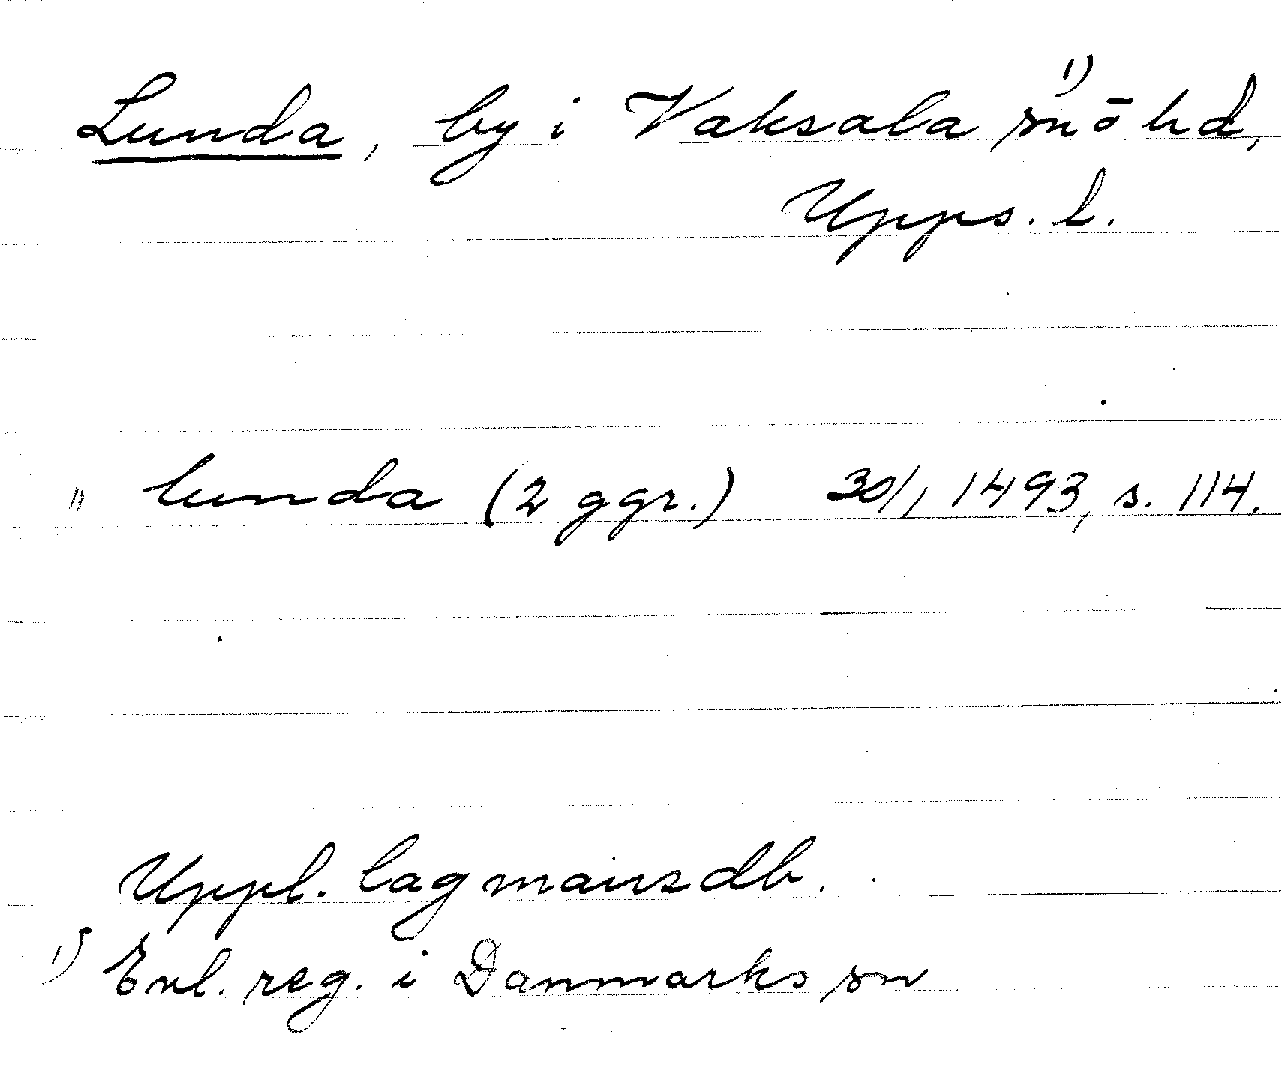 Lunda, by i Vaksala sn ¹⁾ o hd,
Upps. l.
" lunda (2 ggr.) 30/1 1493, s. 114.
Uppl. lagmansdb.
1) Enl. reg. i Danmarks sn